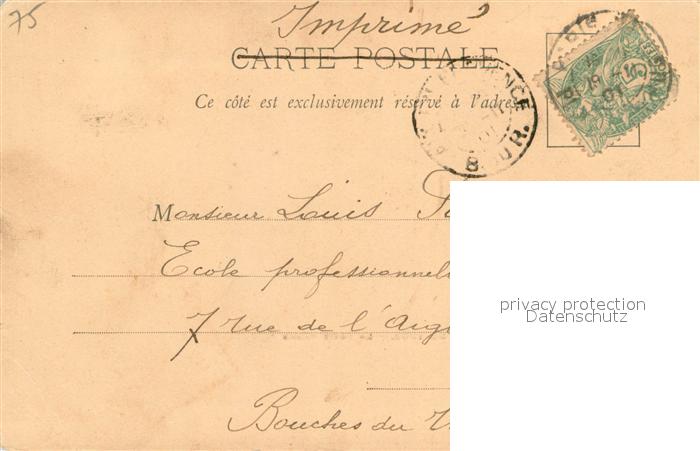 75
Imprimé
CARTE POSTALE
Ce côté est exclusivement réservé à l'adresse
Monsieur Louis
Ecole professionnell
7 rue de l'Aig
Bouches du
privacy protection
Datenschutz